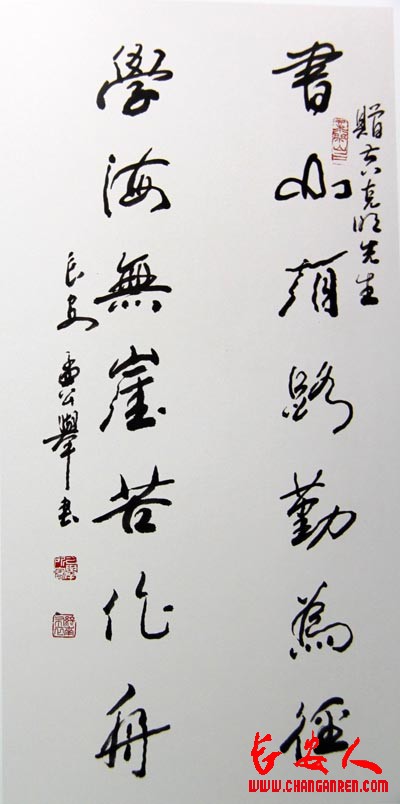 贈吉克明先生
書山有路勤為徑
學海無崖苦作舟
長安雷公舉書
长安人
WWW.CHANGANREN.COM